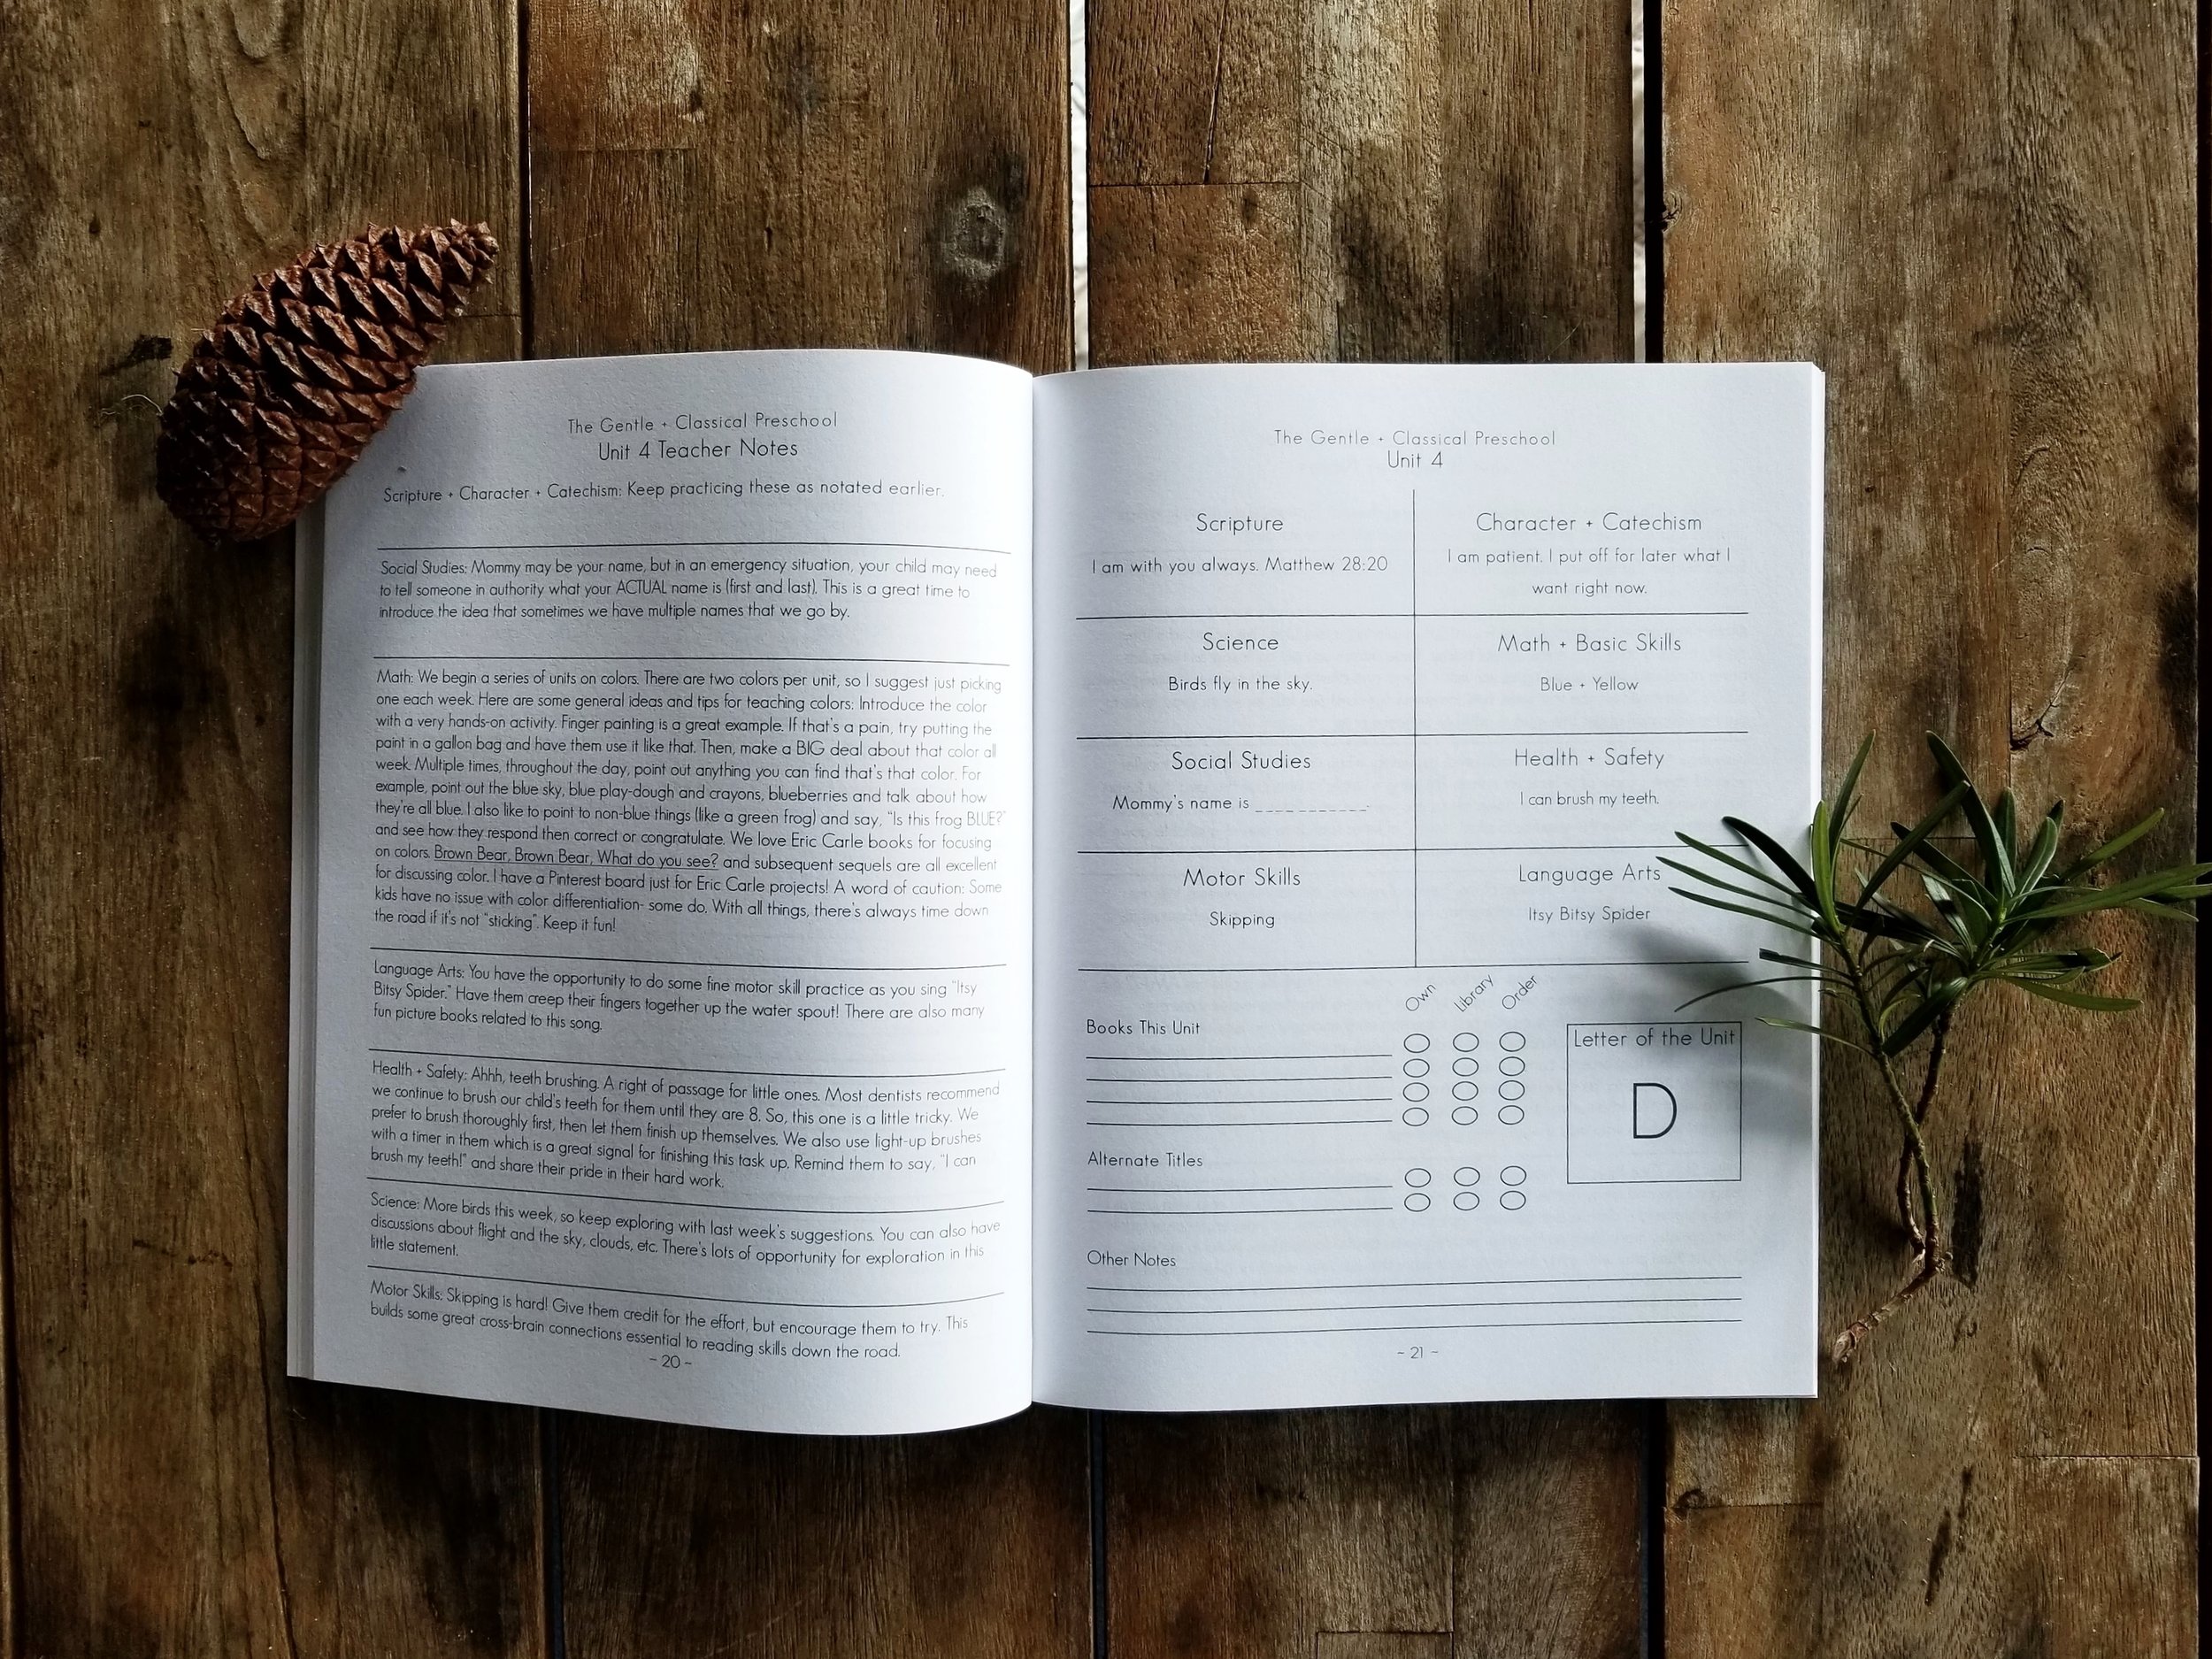 The Gentle + Classical Preschool
Unit 4 Teacher Notes
Scripture + Character + Catechism: Keep practicing these as notated earlier.
Social Studies: Mommy may be your name, but in an emergency situation, your child may need
to tell someone in authority what your ACTUAL name is (first and last). This is a great time to
introduce the idea that sometimes we have multiple names that we go by.
Math: We begin a series of units on colors. There are two colors per unit, so I suggest just picking
one each week. Here are some general ideas and tips for teaching colors: Introduce the color
with a very hands-on activity. Finger painting is a great example. If that's a pain, try putting the
paint in a gallon bag and have them use it like that. Then, make a BIG deal about that color all
week. Multiple times, throughout the day, point out anything you can find that's that color. For
example, point out the blue sky, blue play-dough and crayons, blueberries and talk about how
they're all blue. I also like to point to non-blue things (like a green frog) and say, "Is this frog BLUE?"
and see how they respond then correct or congratulate. We love Eric Carle books for focusing
on colors. Brown Bear, Brown Bear, What do you see? and subsequent sequels are all excellent
for discussing color. I have a Pinterest board just for Eric Carle projects! A word of caution: Some
kids have no issue with color differentiation- some do. With all things, there's always time down
the road if it's not "sticking". Keep it fun!
Language Arts: You have the opportunity to do some fine motor skill practice as you sing "Itsy
Bitsy Spider." Have them creep their fingers together up the water spout! There are also many
fun picture books related to this song.
Health + Safety: Ahhh, teeth brushing. A right of passage for little ones. Most dentists recommend
we continue to brush our child's teeth for them until they are 8. So, this one is a little tricky. We
prefer to brush thoroughly first, then let them finish up themselves. We also use light-up brushes
with a timer in them which is a great signal for finishing this task up. Remind them to say, "I can
brush my teeth!" and share their pride in their hard work.
Science: More birds this week, so keep exploring with last week's suggestions. You can also have
discussions about flight and the sky, clouds, etc. There's lots of opportunity for exploration in this
little statement.
Motor Skills: Skipping is hard! Give them credit for the effort, but encourage them to try. This
builds some great cross-brain connections essential to reading skills down the road.
- 20 -
The Gentle + Classical Preschool
Unit 4
Scripture
I am with you always. Matthew 28:20
Character + Catechism
I am patient. I put off for later what I
want right now.
Science
Birds fly in the sky.
Math + Basic Skills
Blue + Yellow
Social Studies
Mommy's name is ___________.
Health + Safety
I can brush my teeth.
Motor Skills
Skipping
Language Arts
Itsy Bitsy Spider
Own
Library
Order
Books This Unit
Letter of the Unit
D
Alternate Titles
Other Notes
- 21 -